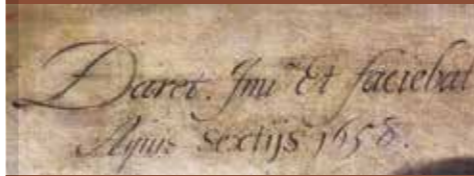 Daret. Inu. Et faciebat
Aquis sextijs 1658.